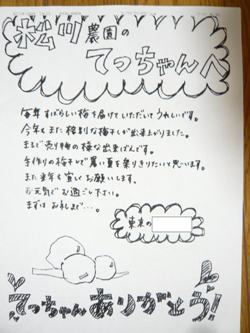 松川農園の
てっちゃんへ
毎年すばらしい梅を届けていただいてうれしいです。
今年もまた格別な梅干しが出来上がりました。
まるで売り物の様な出来ばえです。
手作りの梅干しで暑い夏を乗りきりたいと思います。
また来年も宜しくお願いします。
お元気でお過ごし下さい。
まずはお礼まで…。
東京の
てっちゃんありがとう!